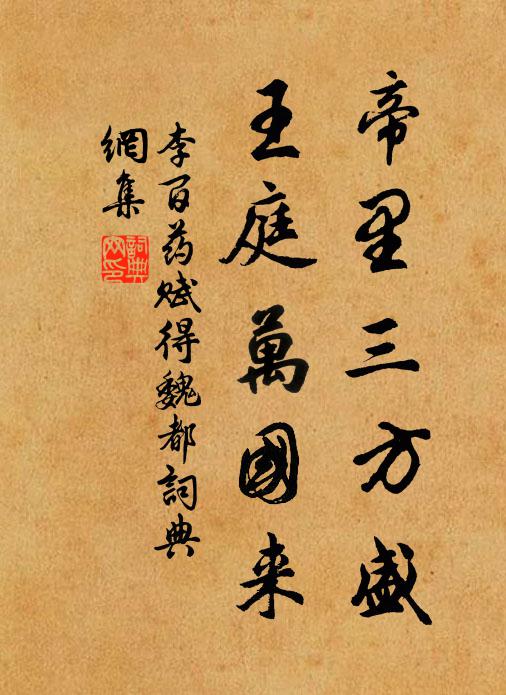 帝里三方盛
王庭萬國来
李百药赋得魏都詞典
網集
詞典
网印